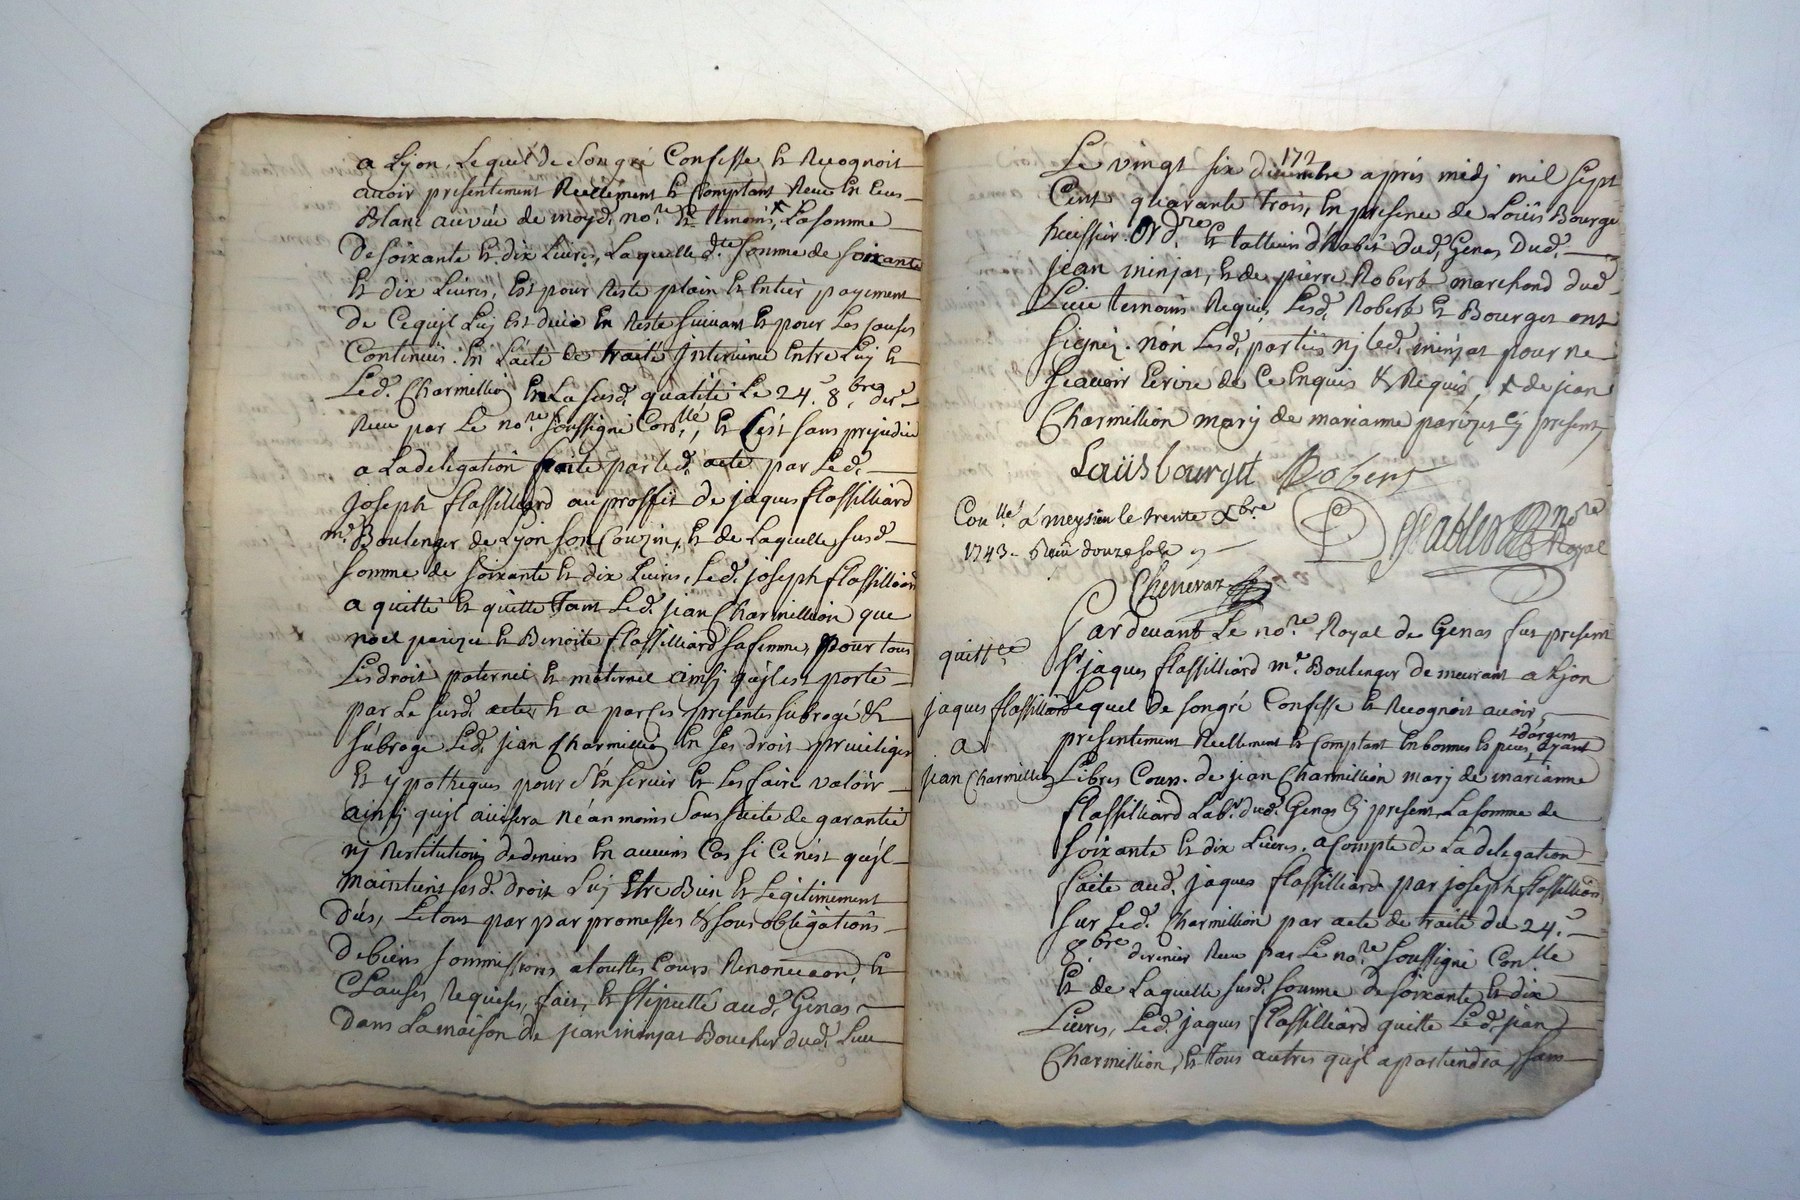 a Lyon, Lequel de Son gré Confesse Et Recognoit
avoir presentement Reellement Et Comptant Receu En Ecus
Blanc au vüe de moyd. no.re Et temoins, La somme
De soixante Et dix Livres, Laquelle d.te somme de soixante
Et dix Livres, Est pour Reste plain Et Entier payement
De Ce qu'jl Luj Est duë En Reste suivant Et pour Les causes
Contenuës En L'acte de traité Intervenu Entre Luj Et
Led. Charmillion En La susd. qualité Le 24.e 8.bre der.r
Receu par Le no.re soussigné Con.llé, Et C'est sans prejudice
a La delegation faite par led. acte par Led.
Joseph flassilliard au proffit de jaques flassilliard
m.e Boulenger de Lyon son Couzin, Et de Laquelle susd.
somme de soixante Et dix Livres, Led. joseph flassilliard
a quitté Et quitte Tant Led. jean Charmillion que
noel Et Benoite flassilliard sa femme, pour tous
Les droit paternel Et maternel ainsj qu'jl est porté
par Le susd. acte, Et a par Ces presentes subrogé Et
subroge Led. jean Charmillion En ses droit privileges
Et ypotheques pour s'En servir Et Les faire valoir
ainsj qu'jl avisera néanmoins sans suite de garantie
nj Restitution de deniers En aucuns Cas si Ce n'est qu'jl
maintient sesd. droit Luj Etre Bien Et Legitimement
Dus, Le tous par par promesses & sous obligations
De biens sommissions a touttes Cours Renonciaon, Et
Clauses Requises, fait, Et stipullé aud. Genas
Dans La maison de jean ininjat Boucher dud. Lieu
172
Le vingt six decembre apris midj mil sept
Cent quarante trois, En presence de Loüis Bourget
huissier Ord.re Et tallieur d'habis dud. Genas, Dud.
jean ininjat, Et de pierre Robert marchand dud.
Lieu temoins Requis, Lesd. Robert Et Bourget ont
signéz. nón Lesd. parties nj led. ininjat pour ne
scavoir Ecrire de Ce Enquis & Requis, x de jean
Charmillion marj de marianne Cy present
Loüis bourget Robert
Con.llé a meysieu le trente Xbre
1743. Reçu douze sols
no.re Royal
Chenevaz
Pardevant Le no.re Royal de Genas fut present
quitt.ce
jaques flassilliard
a
jean Charmillion
S.r jaques flassilliard m.e Boulenger demeurant a Lyon
Lequel de son gré Confesse Et Recognoit avoir
presentement Reellement Et Comptant En bonnes Et pieces d'argent ayant
Libres Cours. de jean Charmillion marj de marianne
flassilliard Lab.r dud. Genas Cj present La somme de
soixante Et dix Livres. a Compte de La delegation
faite aud. jaques flassilliard par joseph flassilliard
sur Led. Charmillion par acte de traité du 24.e
8.bre dernier Receu par Le no.re soussigné Con.llé
Et de Laquelle susd. somme de soixante Et dix
Livres, Led. jaques flassilliard quitte Led. jean
Charmillion, Et tous autres qu'jl apartiendra, sans